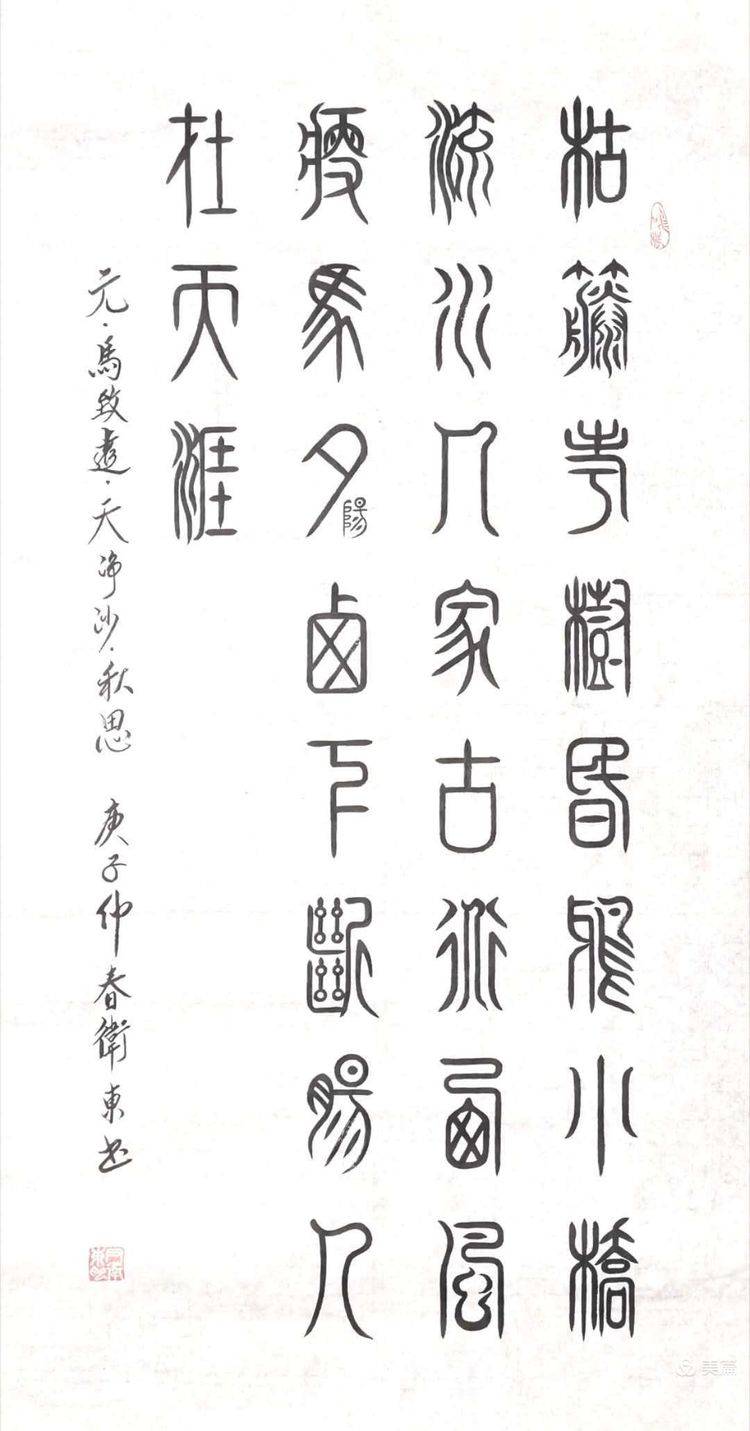 枯籐老樹昏鴉小橋
流水人家古道西風
瘦馬夕陽西下斷腸人
在天涯
元·馬致遠·天净沙·秋思 庚子仲春衛東书
美篇